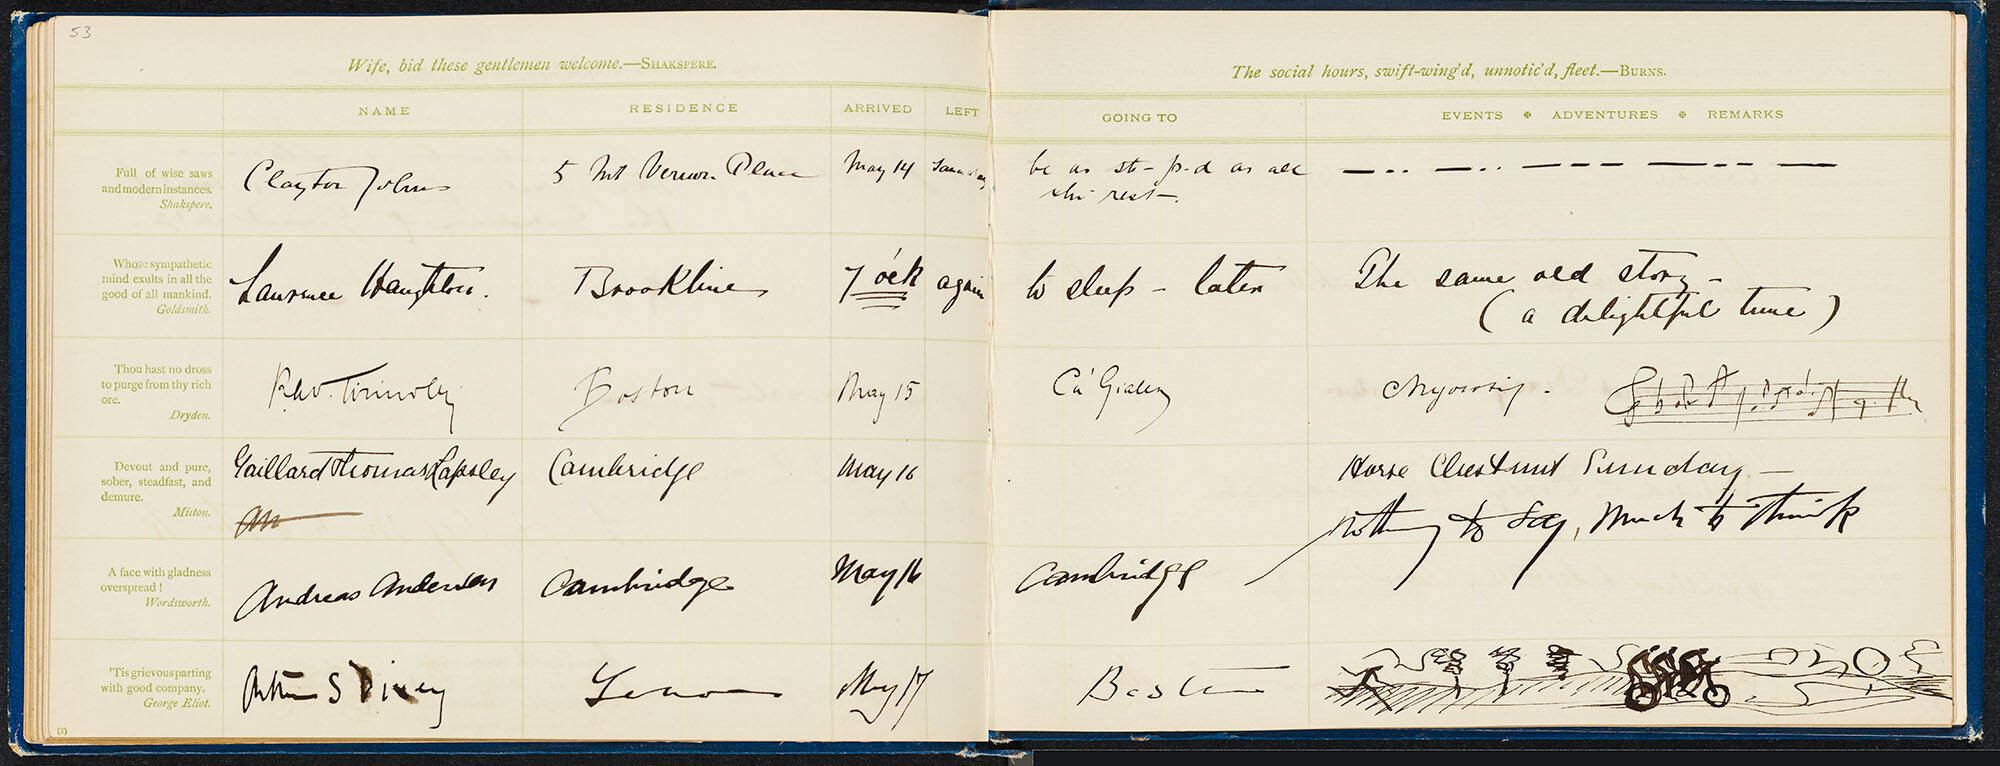 53
Wife, bid these gentlemen welcome.—SHAKSPERE.
The social hours, swift-wing'd, unnotic'd, fleet.—BURNS.
NAME RESIDENCE ARRIVED LEFT GOING TO EVENTS ✠ ADVENTURES ✠ REMARKS
Full of wise saws
and modern instances.
Shakspere.
Clayton Johns 5 Mt Vernon Place May 14 be as st-p-d as all
the rest-.
Whose sympathetic
mind exults in all the
good of all mankind.
Goldsmith.
Laurence Haughton. Brookline 7 o'ck again to sleep - later The same old story -
( a delightful tune )
Thou hast no dross
to purge from thy rich
ore.
Dryden.
Boston May 15
Devout and pure,
sober, steadfast, and
demure.
Milton.
Gaillard Thomas Lapsley Cambridge May 16 Horse Chestnut Sunday —
A face with gladness
overspread!
Wordsworth.
Andreas Andersen Cambridge May 16 Cambridge nothing to say, much to think
'Tis grievous parting
with good company.
George Eliot.
May 17 Boston
(3)